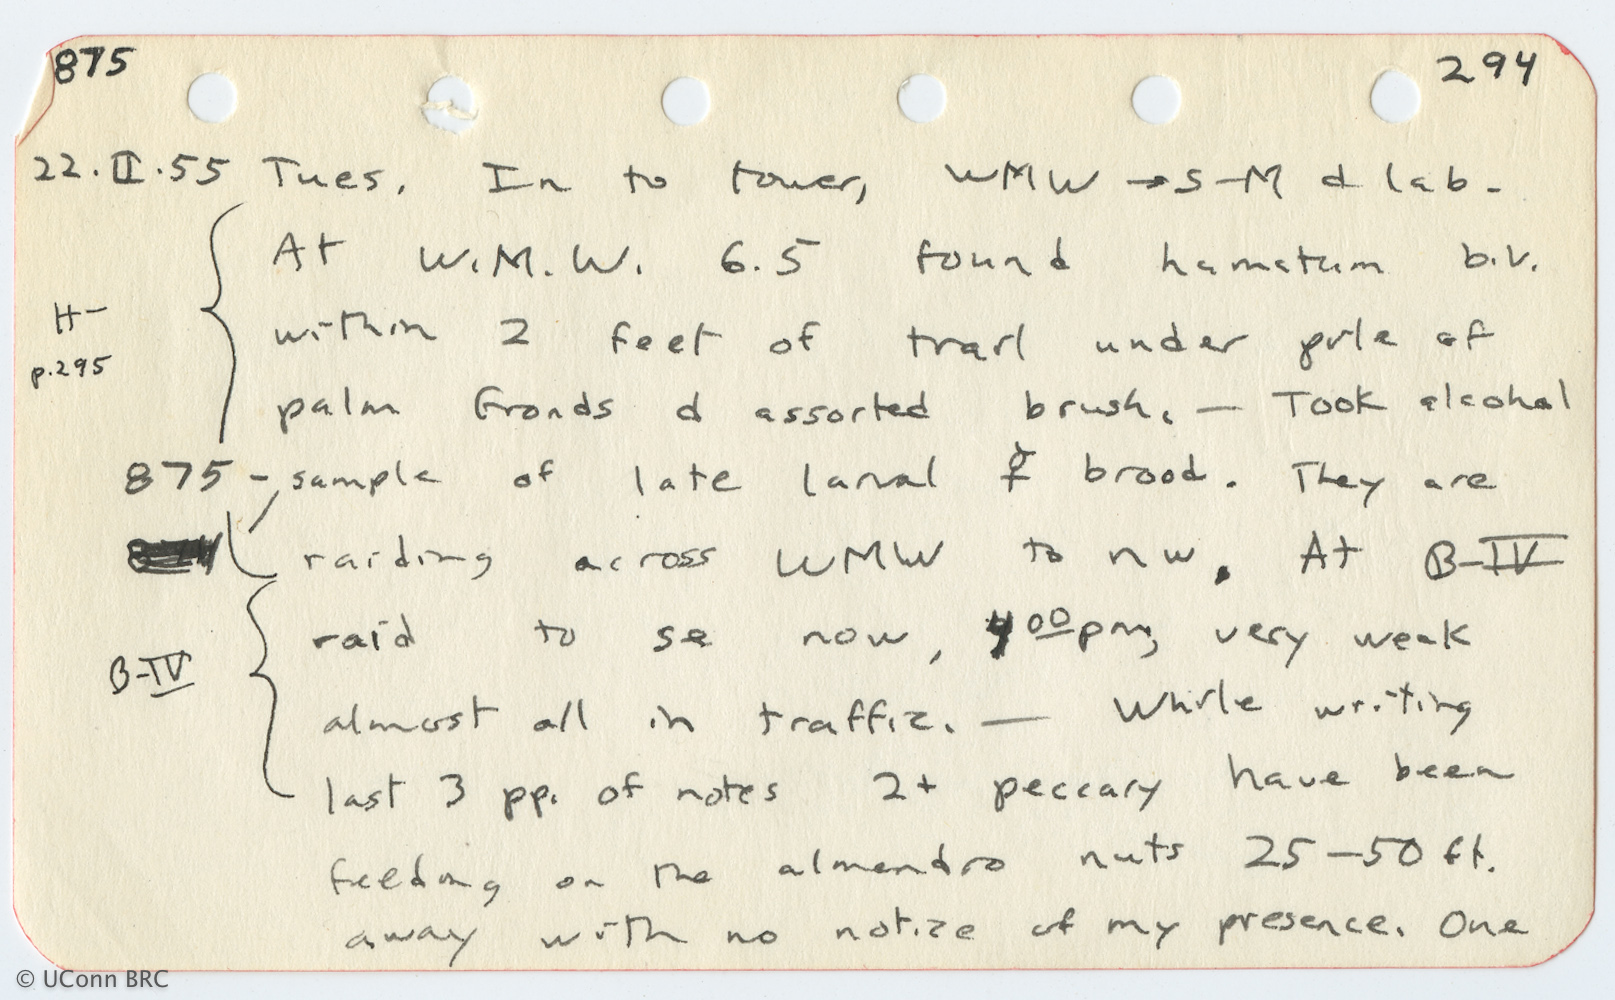 875 294
22.II.55 Tues. In to tower, WMW → S-M & lab.
At W.M.W. 6.5 found hamatum biv.
H- within 2 feet of trail under pile of
p.295
palm fronds & assorted brush. — Took alcohol
875 - sample of late larval ☿ brood. They are
raiding across WMW to nw. At B-IV
raid to se now, 4⁰⁰pm, very weak
B-IV
almost all in traffic. — While writing
last 3 pp. of notes 2+ peccary have been
feeding on the almendro nuts 25-50 ft.
away with no notice of my presence. One
© UConn BRC